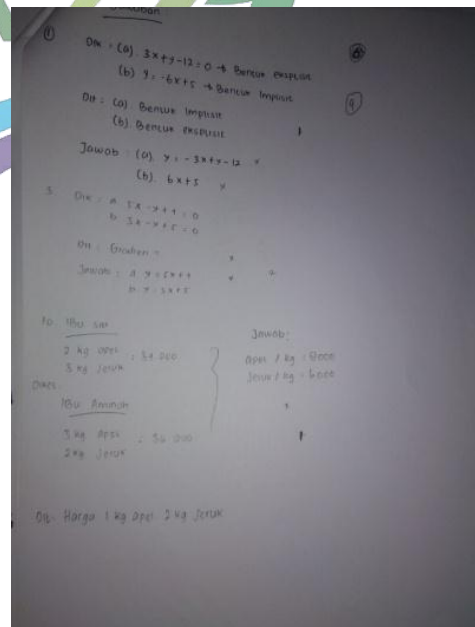 ①
Dik : (a). 3x+y-12=0 → Bentuk eksplisit
(b) y = -6x+5 → Bentuk Implisit
Dit : (a). Bentuk Implisit
(b). Bentuk eksplisit
Jawab : (a). y = -3x+y-12 x
(b). 6x+5 x
3. Dik : a. 5x-y+4=0
b. 3x-y+5=0
Dit : Gradien =
Jawab : a. y = 5x+4
b. y = 3x+5
10. IBu sari
2 kg apel
3 kg Jeruk
IBu Aminah
3 kg apel
2 kg Jeruk
Jawab:
apel / kg = 8000
Jeruk / kg = 6000
Dit: Harga 1 kg apel 2 kg Jeruk